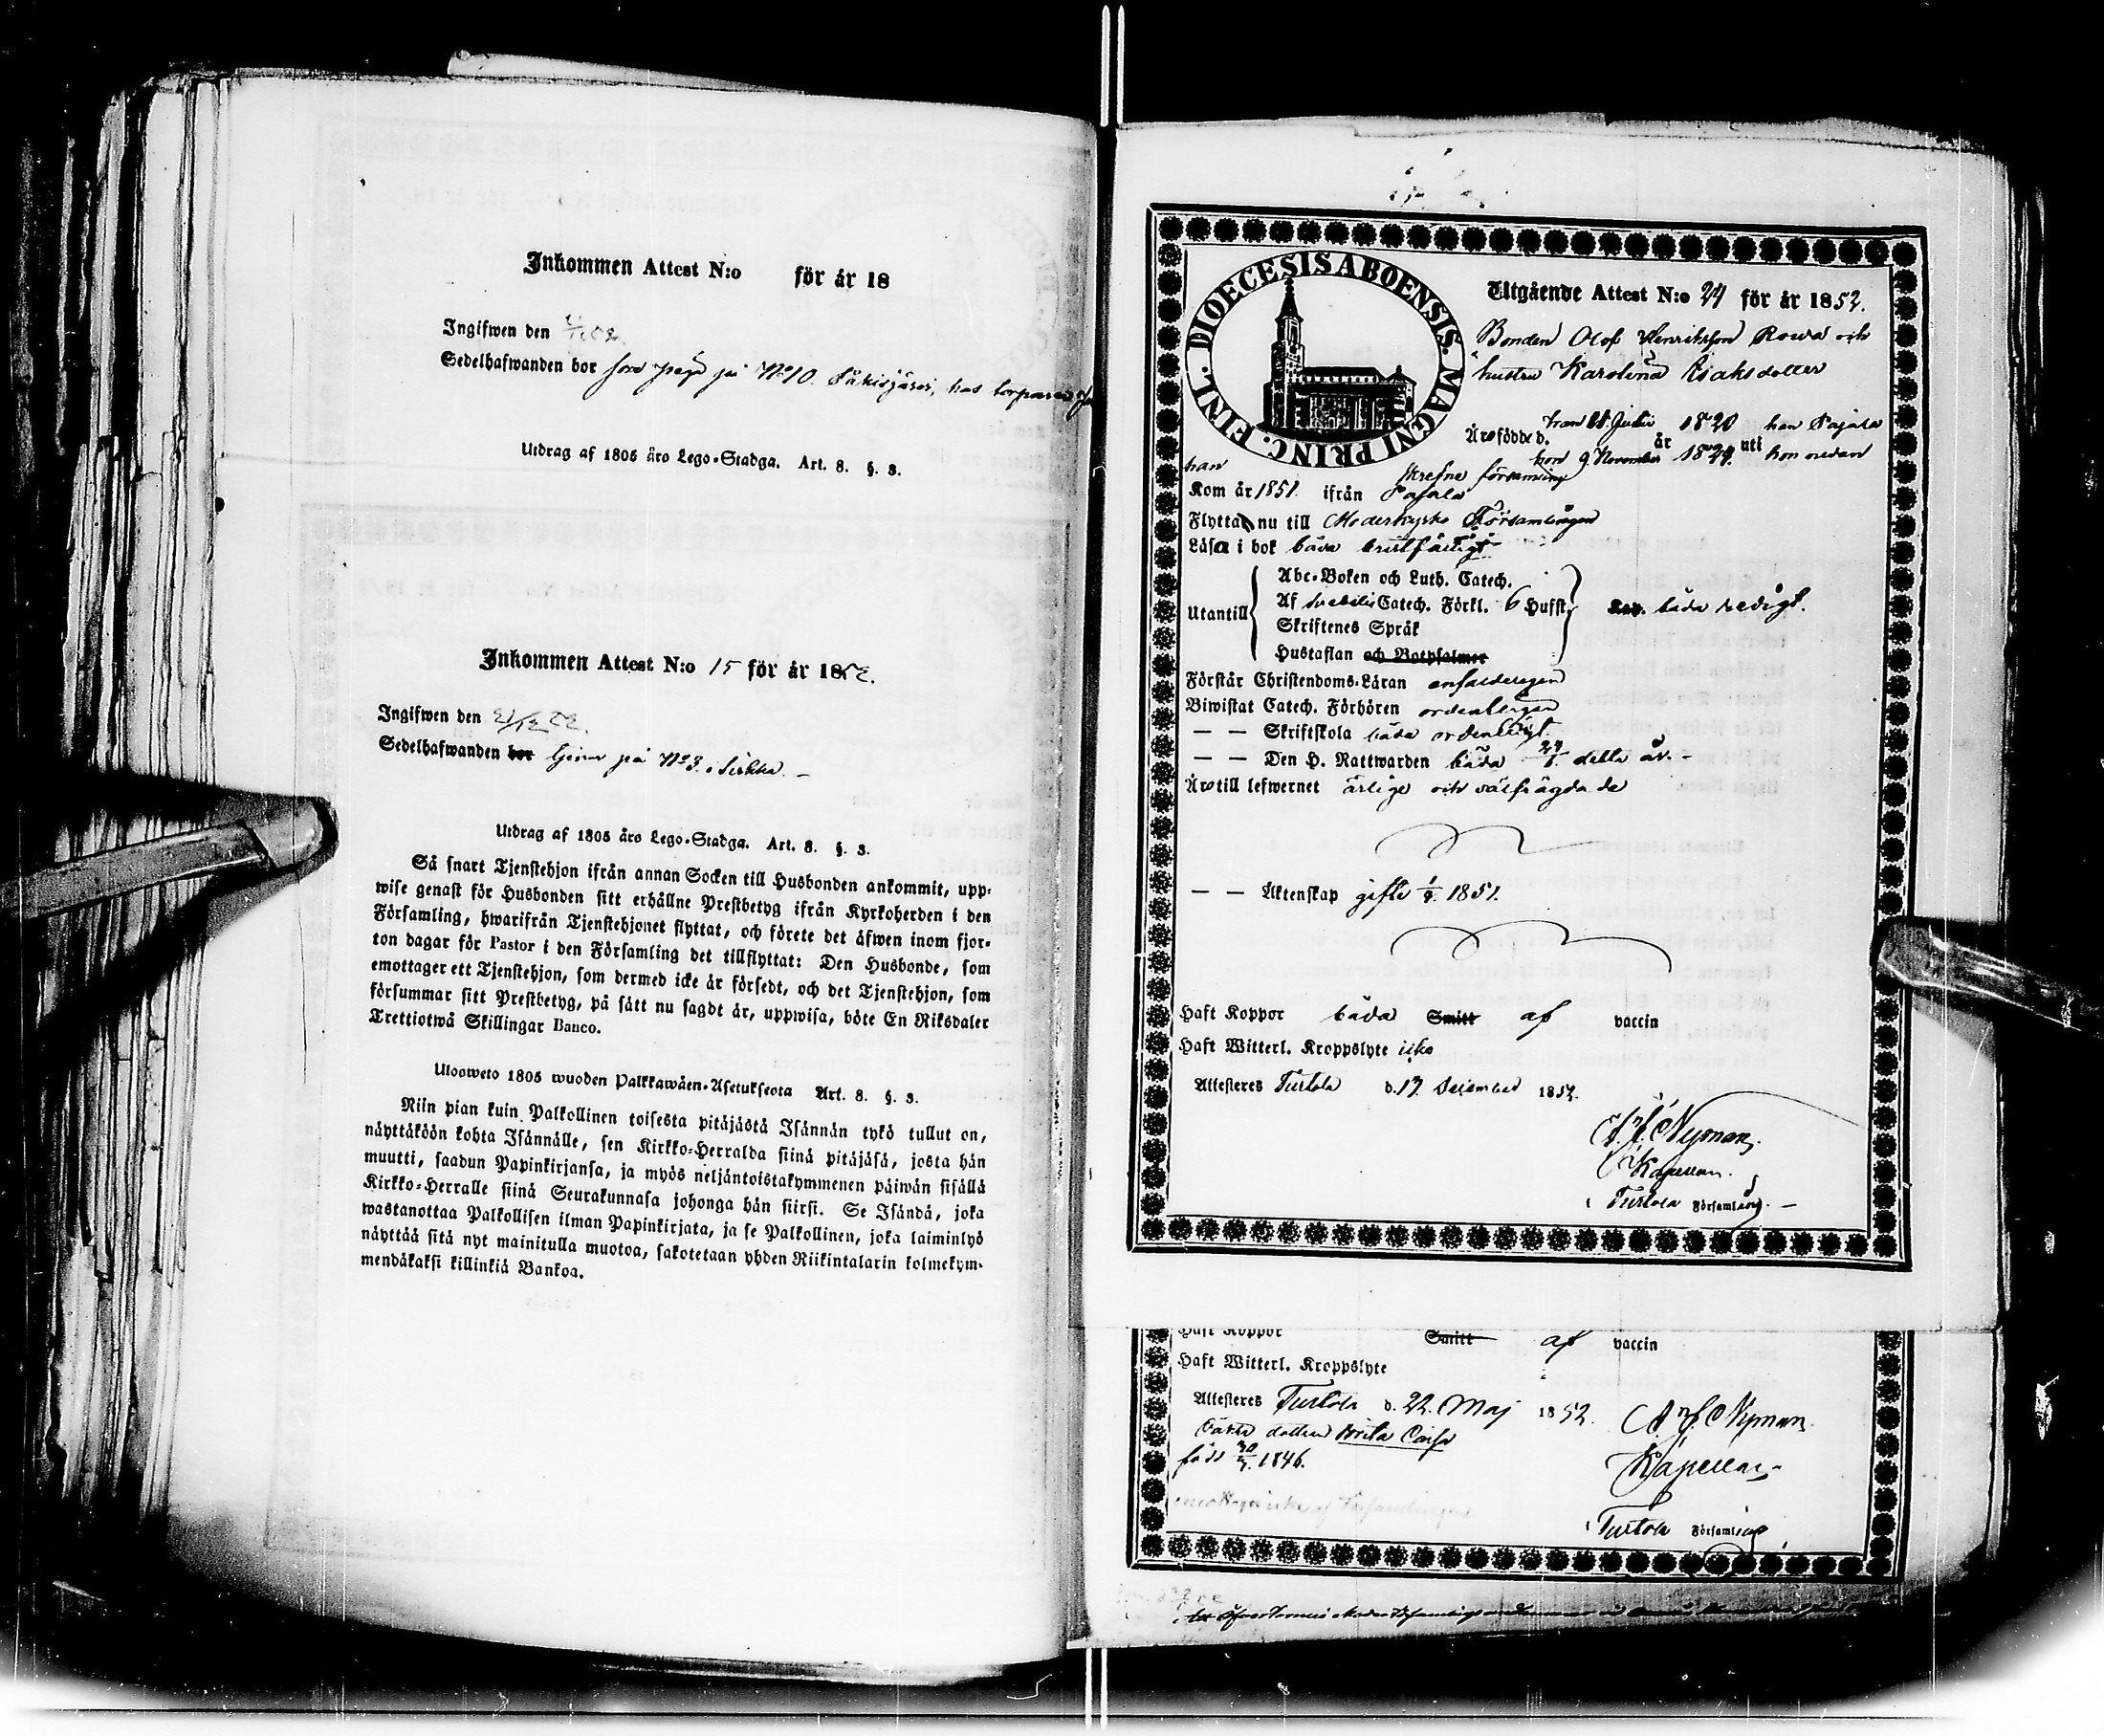 Inkommen Attest N:o för år 18
Ingifwen den
Sedelhafwanden bor som på N:o 10. hos
Utdrag af 1805 års Lego-Stadga. Art. 8. §. 3.
Inkommen Attest N:o 15 för år 1852.
Ingifwen den
Sedelhafwanden bor tjenar på N:o 3. i Sirkka. –
Utdrag af 1805 års Lego-Stadga. Art. 8. §. 3.
Så snart Tjenstehjon ifrån annan Socken till Husbonden ankommit, upp-
wise genast för Husbonden sitt erhållne Prestbetyg ifrån Kyrkoherden i den
Församling, hwarifrån Tjenstehjonet flyttat, och förete det äfwen inom fjor-
ton dagar för Pastor i den Församling det tillflyttat: Den Husbonde, som
emottager ett Tjenstehjon, som dermed icke är försedt, och det Tjenstehjon, som
försummar sitt Prestbetyg, på sätt nu sagdt är, uppwisa, böte En Riksdaler
Trettiotwå Skillingar Banco.
Ulosweto 1805 wuoden Palkkawäen-Asetuksesta Art. 8. §. 3.
Niin pian kuin Palkollinen toisesta pitäjästä Isännän tykö tullut on,
näyttäköön kohta Isännälle, sen Kirkko-Herralda siinä pitäjäsä, josta hän
muutti, saadun Papinkirjansa, ja myös neljäntoistakymmenen päiwän sisällä
Kirkko-Herralle siinä Seurakunnasa johonga hän siirsi. Se Isändä, joka
wastanottaa Palkollisen ilman Papinkirjata, ja se Palkollinen, joka laiminlyö
näyttää sitä nyt mainitulla muotoa, sakotetaan yhden Riikintalarin kolmekym-
mendäkaksi killinkiä Bankoa.
DIOECESIS ABOENSIS. MAGNI PRINC. FINL.
Utgående Attest N:o 24 för år 1852.
Bonden Olof Henriksson Rowa och
hustru Karolina Isaksdotter
Äro födde d. han 11 Julii 1820 han Pajala
hon 9 November år 1824. uti hon nedan
han skrefne församling
Kom år 1851. ifrån Pajala
Flytta nu till Moderkyrko Församlingen
Läsa i bok båda
Utantill
Abc-Boken och Luth. Catech.
Af Svebilii Catech. Förkl. 6 Hufst.
Skriftenes Språk
Hustaflan och Botpsalmer
båda redigt.
Förstår Christendoms-Läran enfaldeligen
Biwistat Catech. Förhören ordentligen
– – Skriftskola båda ordentligt.
– – Den H. Nattwarden båda detta år. –
Äro till lefwernet ärlige och välfrägdade
– – Äktenskap gifte 1851.
Haft Koppor båda Smitt af vaccin
Haft Witterl. Kroppslyte icke
Attesteres Turtola d. 17. December 1852.
Nyman.
Kapellan.
i Turtola Församling. –
Haft Koppor Smitt af vaccin
Haft Witterl. Kroppslyte
Attesteres Turtola d. 22. Maj 1852.
Nyman.
dottren Brita Caisa
född 1846.
Kapellan.
i Turtola Församling